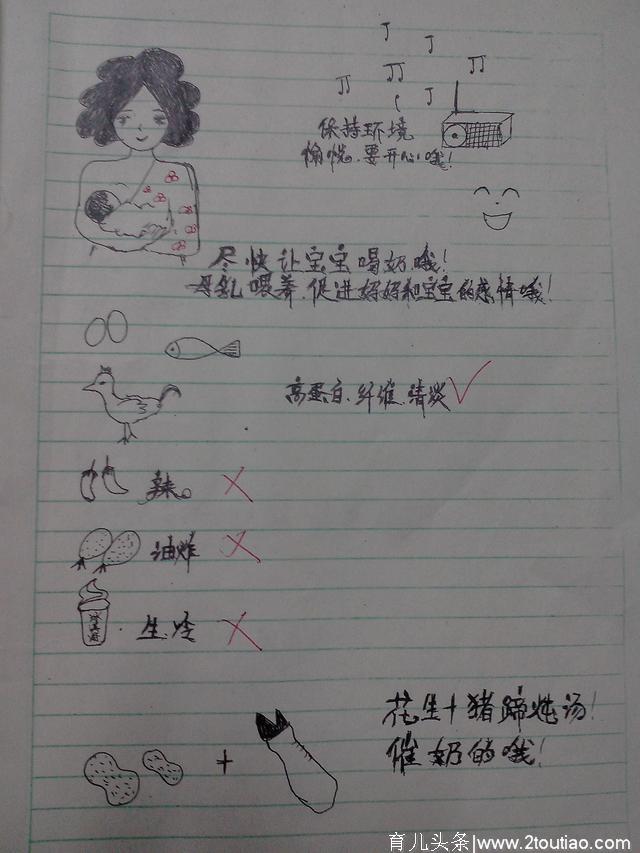 保持环境
愉悦.要开心哦!
尽快让宝宝喝奶哦!
母乳喂养.促进妈妈和宝宝的感情哦!
高蛋白.纤维.清淡
辣。
油炸
生.冷
花生+猪蹄炖汤!
催奶的哦!
育儿头条|www.2toutiao.com